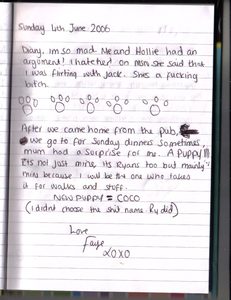 Sunday 4th June 2006
Diary, im so mad. Me and Hollie had an
argument! I hate her on MSN she said that
I was flirting with Jack. Shes a fucking
bitch.
After we came home from the pub,
we go to for Sunday dinners sometimes,
mum had a surprise for me. A PUPPY!!!
Its not just mine, its Ryans too but mainly
mine because I will be the one who takes
it for walks and stuff.
NEW PUPPY = COCO
(i didnt choose the shit name Ry did)
Love
Faye
xoxo